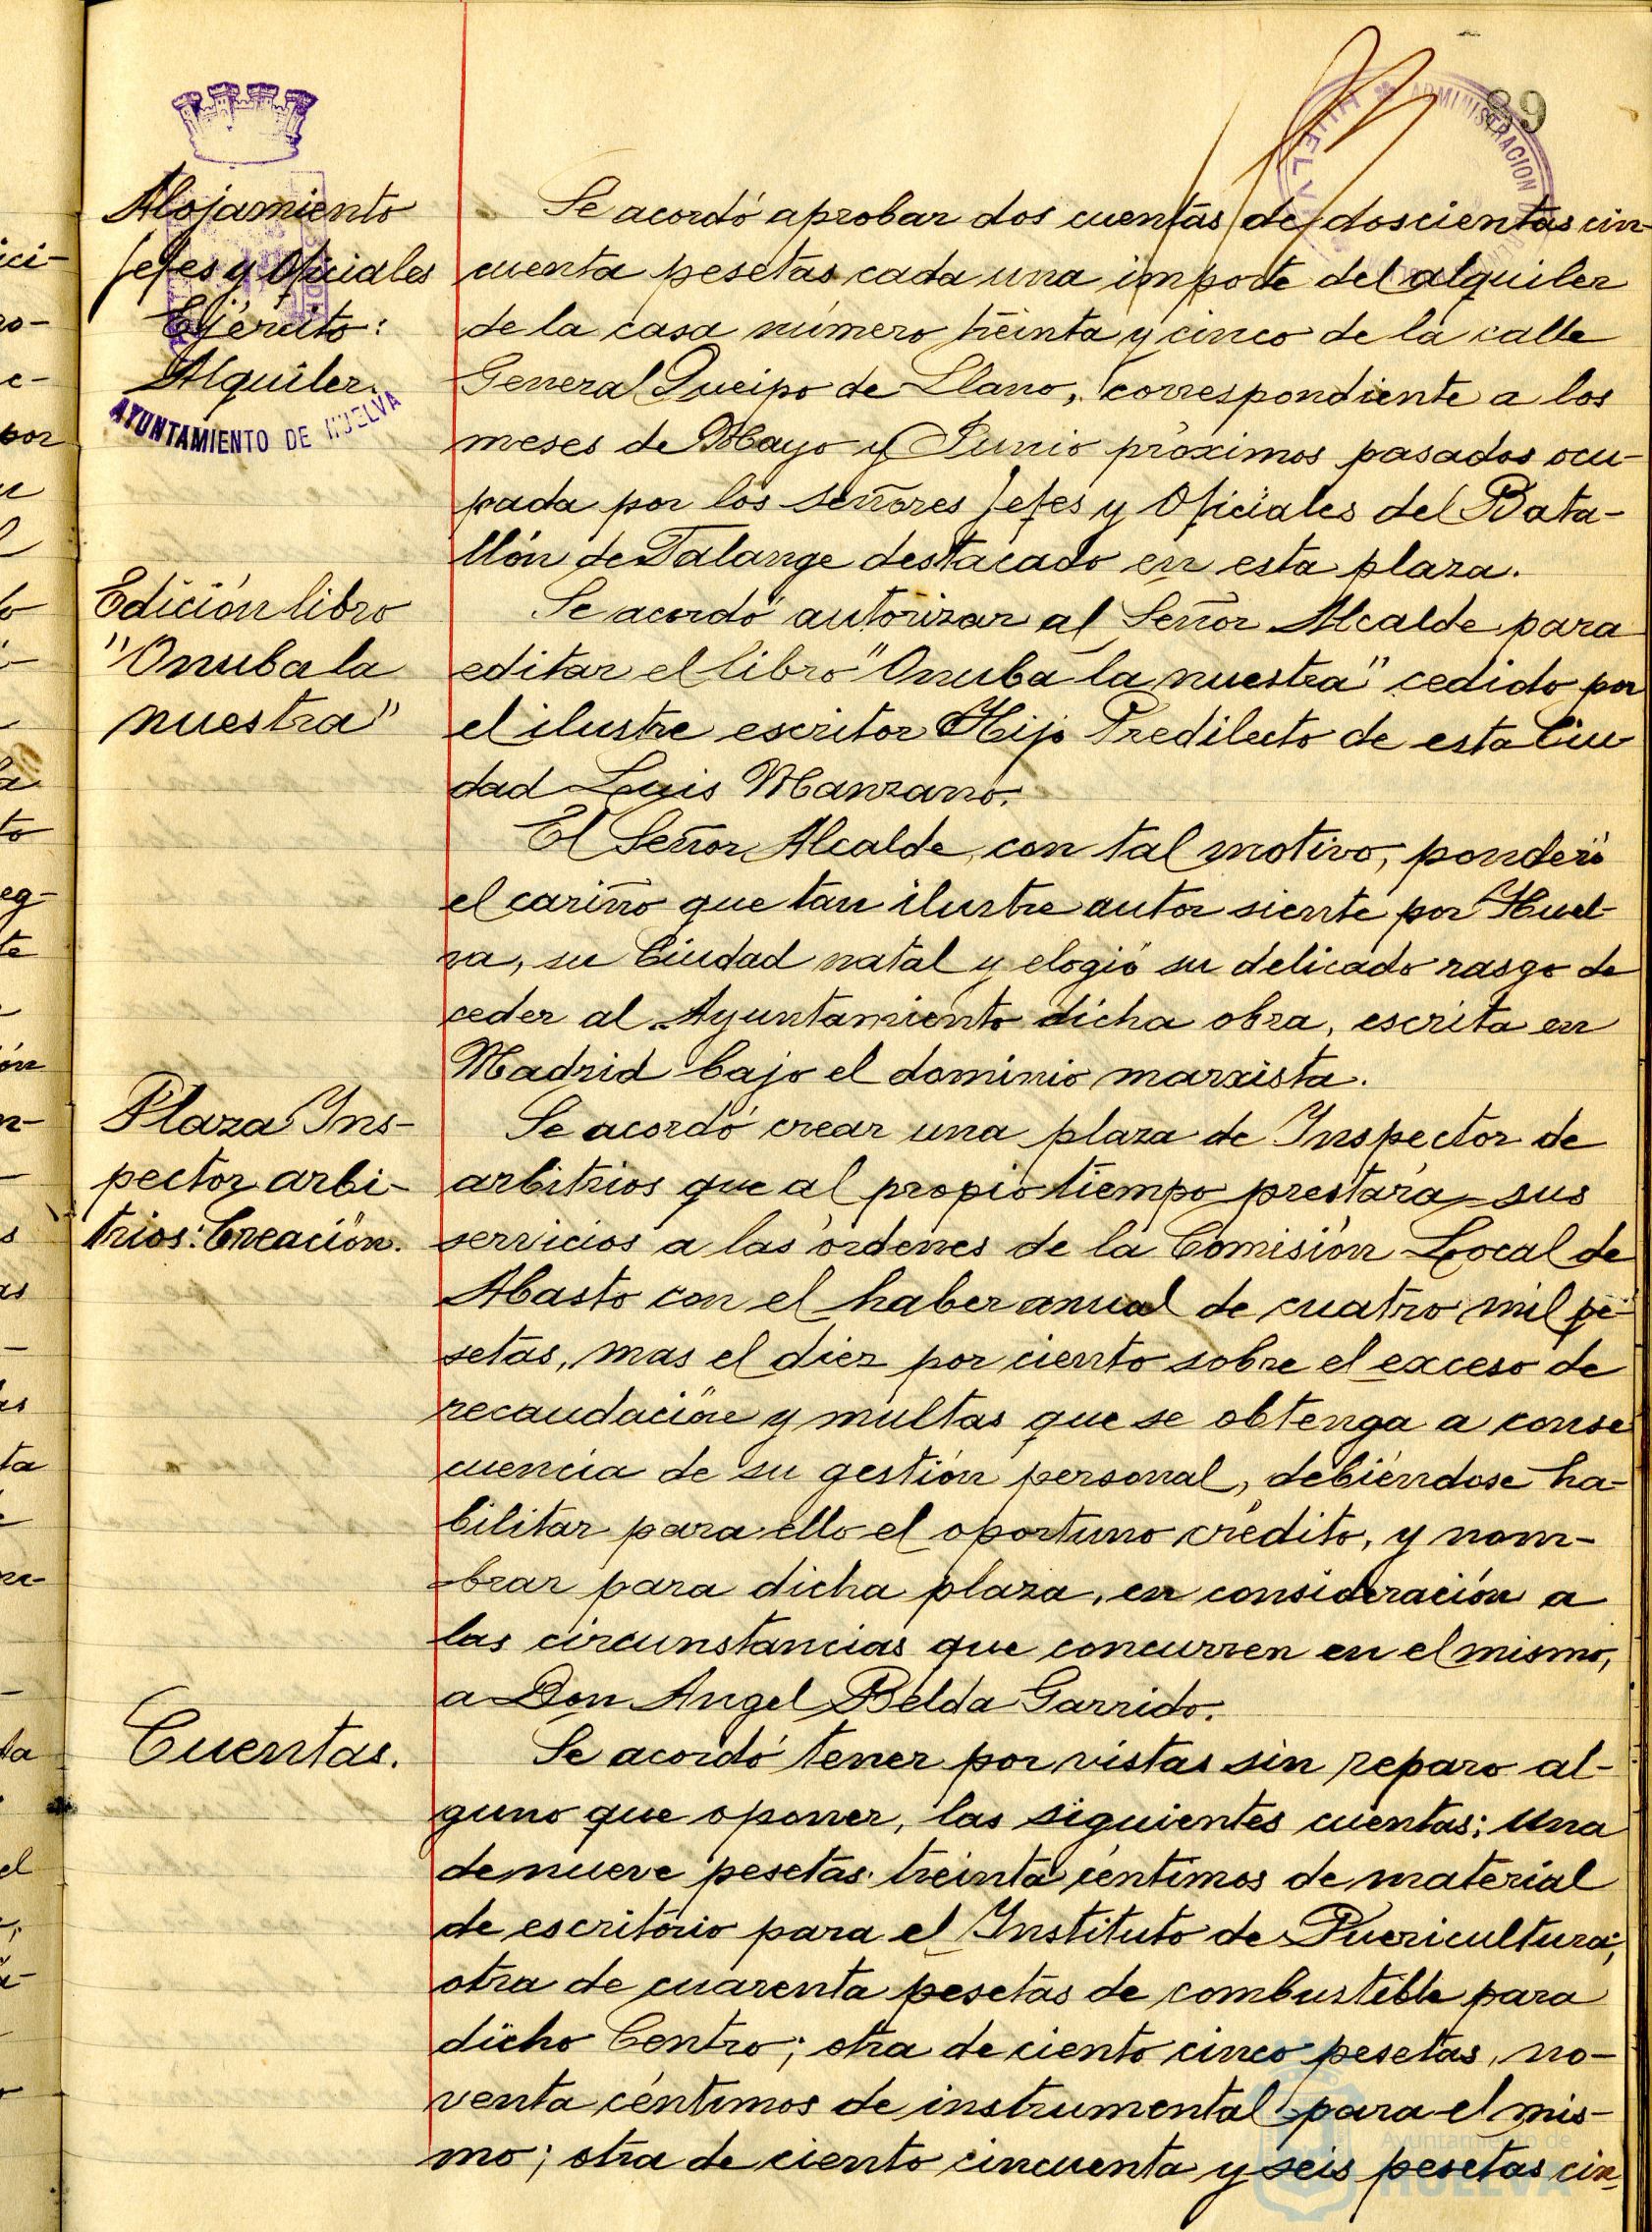 89
ADMINISTRACION
HUELVA
Alojamiento
Jefes y Oficiales
Ejército:
Alquiler.
AYUNTAMIENTO DE HUELVA
Se acordó aprobar dos cuentas de doscientas cin-
cuenta pesetas cada una importe del alquiler
de la casa número treinta y cinco de la calle
General Queipo de Llano, correspondiente a los
meses de Mayo y Junio próximos pasados ocu-
pada por los señores Jefes y Oficiales del Bata-
llón de Talange destacado en esta plaza.
Edición libro
"Onuba la
nuestra"
Se acordó autorizar al Señor Alcalde para
editar el libro "Onuba la nuestra" cedido por
el ilustre escritor Hijo Predilecto de esta Ciu-
dad Luis Manzano.
El Señor Alcalde, con tal motivo, ponderó
el cariño que tan ilustre autor siente por Huel-
va, su Ciudad natal y elogió su delicado rasgo de
ceder al Ayuntamiento dicha obra, escrita en
Madrid bajo el dominio marxista.
Plaza Ins-
pector arbi-
trios: Creación.
Se acordó crear una plaza de Inspector de
arbitrios que al propio tiempo prestará sus
servicios a las órdenes de la Comisión Local de
Abasto con el haber anual de cuatro mil pe-
setas, mas el diez por ciento sobre el exceso de
recaudación y multas que se obtenga a conse
cuencia de su gestión personal, debiéndose ha-
bilitar para ello el oportuno crédito, y nom-
brar para dicha plaza, en consideración a
las circunstancias que concurren en el mismo,
a Don Angel Belda Garrido.
Cuentas.
Se acordó tener por vistas sin reparo al-
guno que oponer, las siguientes cuentas: Una
de nueve pesetas treinta céntimos de material
de escritorio para el Instituto de Puericultura;
otra de cuarenta pesetas de combustible para
dicho Centro; otra de ciento cinco pesetas, no-
venta céntimos de instrumental para el mis-
mo; otra de ciento cincuenta y seis pesetas cin-
Ayuntamiento de
HUELVA